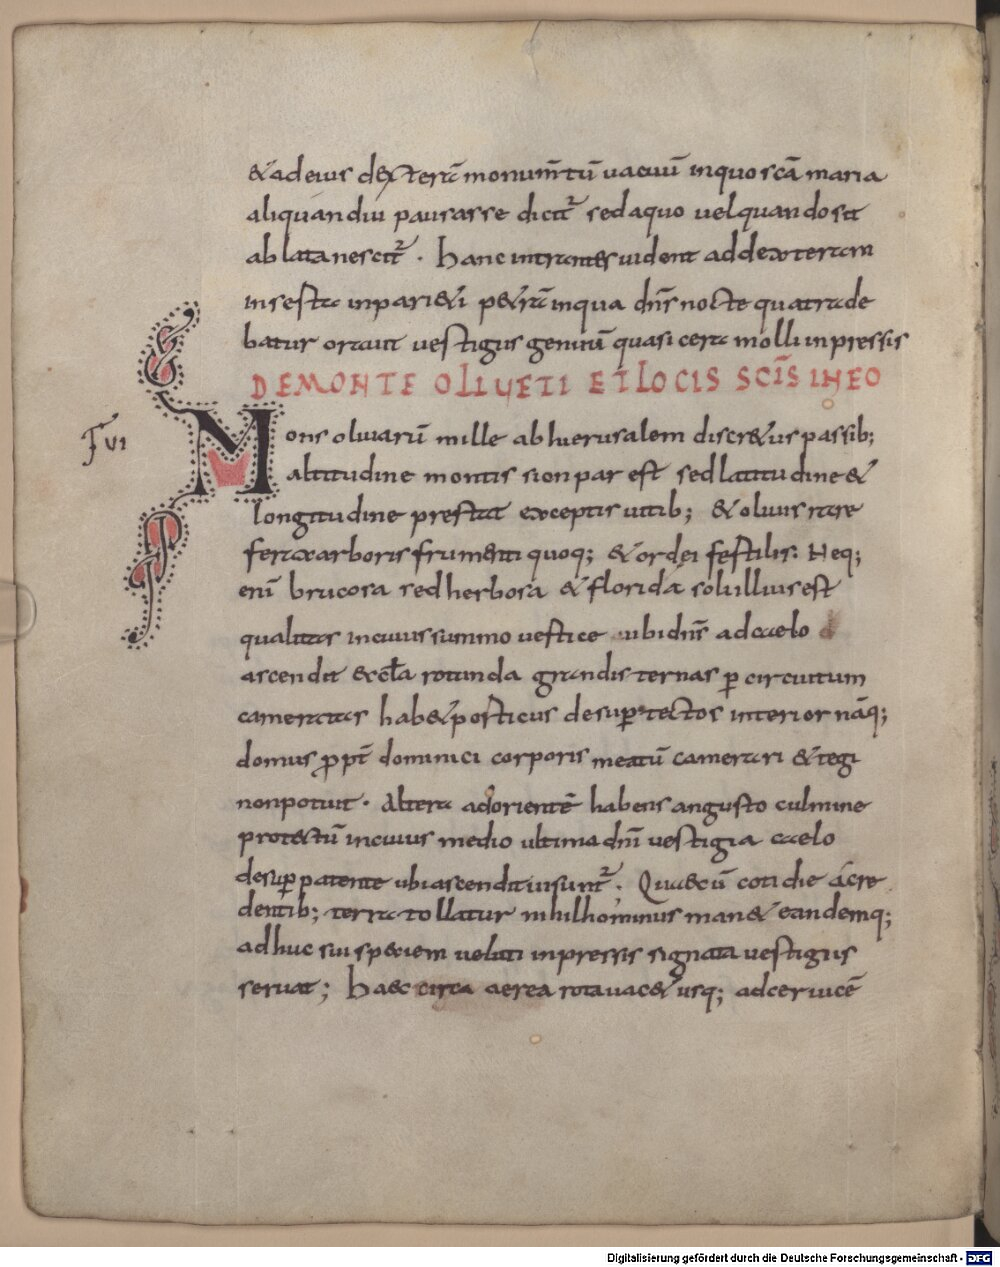 & ad eius dexterā monumtū uacuū in quo scā maria
aliquandiu pausasse dicit̃ sed a quo uel quando sit
ablata nescit̃. Hanc intrantes uident ad dexteram
inserta in pari&i p&rā in qua dn̄s nocte qua trade
batur orauit uestigiis genuū quasi cera molli inpressis
DE MONTE OLIUETI ET LOCIS SCĪS IN EO
VI
Mons oliuarū mille ab hierusalem discr&us passib;
altitudine montis sion par est sed latitudine &
longitudine prestat exceptis uitib; & oliuis rare
ferax arboris frumenti quoq; & ordei fertilis. Neq;
enī brucosa sed herbosa & florida soli illius est
qualitas in cuius summo uertice ubi dn̄s ad caelo
ascendit &cl̄a rotunda grandis ternas ꝑ circuitum
cameratas hab& porticus desuꝑ tectos interior nāq;
domus ꝓpt̄ dominici corporis meatū camerari & tegi
non potuit. Altera ad orientē habens angusto culmine
protectū in cuius medio ultima dn̄i uestigia caelo
desuꝑ patente ubi ascendit uisunt̃. Quae cū cotidie a cre
dentib; terra tollatur nihilhominus man& eandemq;
adhuc sui speciem ueluti inpressis signata uestigiis
seruat; Haec circa aerea rota iac& usq; ad ceruicē
Digitalisierung gefördert durch die Deutsche Forschungsgemeinschaft - DFG